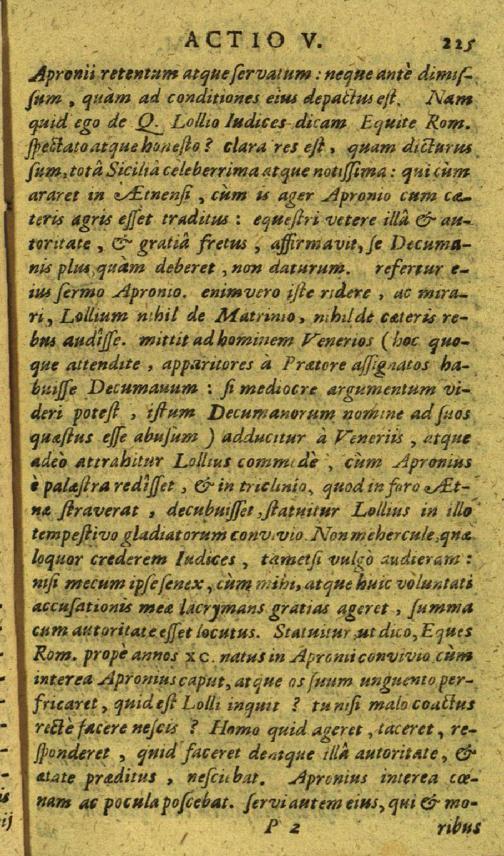 ACTIO V. 225
Apronii retentum atque servatum : neque antè dimis-
sum , quàm ad conditiones eius depactus est. Nam
quid ego de Q. Lollio Iudices dicam Equite Rom.
spectato atque honesto ? clara res est , quam dicturus
sum, totâ Siciliâ celeberrima atque notissima : qui cùm
araret in Ætnensi , cùm is ager Apronio cum cæ-
teris agris esset traditus : equestri vetere illâ & au-
toritate , & gratiâ fretus , affirmavit, se Decuma-
nis plus quàm deberet , non daturum. refertur e-
ius sermo Apronio. enimvero iste ridere , ac mira-
ri , Lollium nihil de Matrinio, nihil de cæteris re-
bus audîsse. mittit ad hominem Venerios (hoc quo-
que attendite , apparitores à Prætore assignatos ha-
buisse Decumauum : si mediocre argumentum vi-
deri potest , istum Decumanorum nomine ad suos
quæstus esse abusum ) adducitur à Veneriis , atque
adeò attrahitur Lollius commodè , cùm Apronius
è palæstra redîsset , & in triclinio, quod in foro Æt-
næ straverat , decubuisset , statuitur Lollius in illo
tempestivo gladiatorum convivio. Non mehercule, quæ
loquor crederem Iudices , tametsi vulgò audieram :
nisi mecum ipse senex , cùm mihi, atque huic voluntati
accusationis meæ lacrymans gratias ageret , summa
cum autoritate esset locutus. Statuitur ut dico, Eques
Rom. prope annos xc. natus in Apronii convivio cùm
interea Apronius caput, atque os suum unguento per-
fricaret, quid est Lolli inquit ? tu nisi malo coactus
rectè facere nescis ? Homo quid ageret , taceret , re-
sponderet , quid faceret deatque illâ autoritate, &
ætate præditus , nesciebat. Apronius interea cœ-
nam ac pocula poscebat. servi autem eius, qui & mo-
P 2 ribus